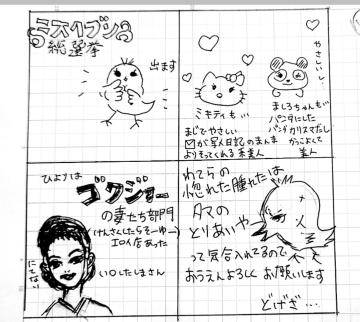 ラオイブン
総選挙
出ます
やさしいし…
ミキティも…
まじでやさしい
が写人日記のまんま
よりそってくれる系美人
ましろちゃんも…
パンダにした
パンダカリスマだし
かっこよくて
美人
ひよりは
ゴクジョー
の妻たち部門
(けんさくしたらそーゆー
エロイ店あった
にてない
いわしたしまさん
われてらの
惚れた腫れたは
タマの
とりあいや…
って気合入れてるので
おうえんよろしくお願いします
どげざ…